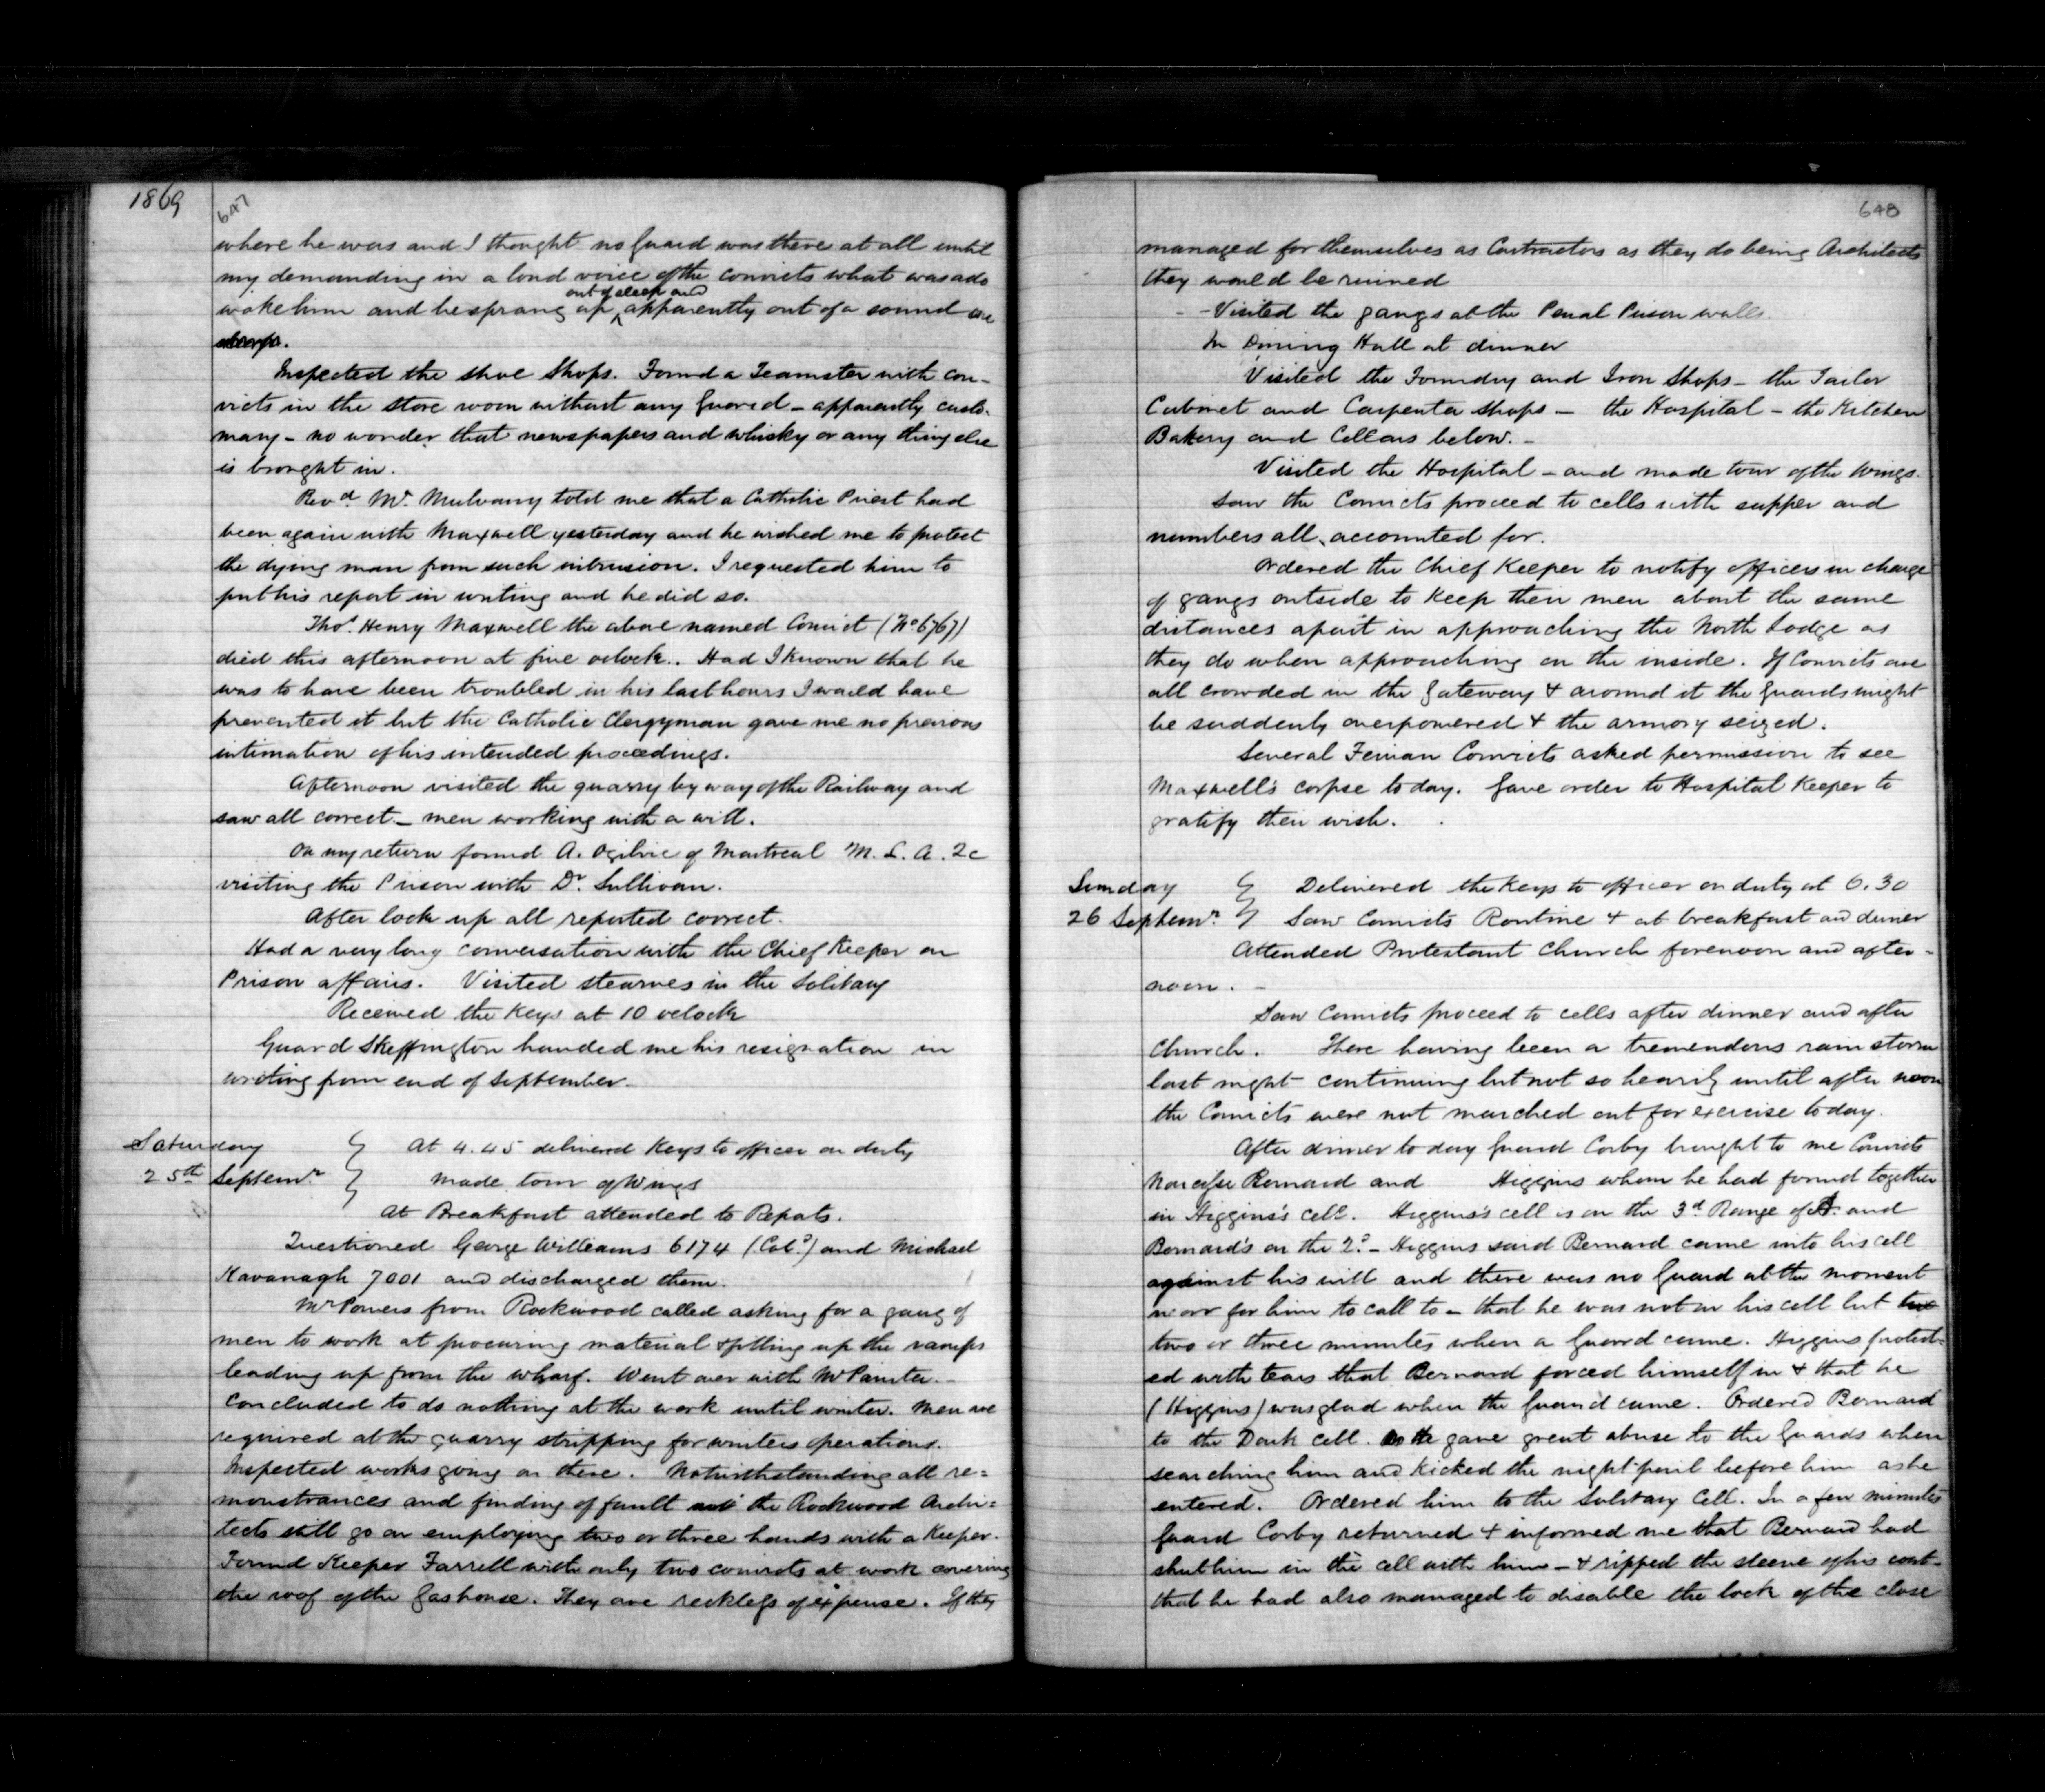 1869
647
where he was and I thought no Guard was there at all until
my demanding in a loud voice of the convicts what was ado
out of sleep and
woke him and he sprang up apparently out of a sound
sleep.
Inspected the shoe shops. Found a Teamster with con-
victs in the store room without any Guard - apparently custo-
mary - no wonder that newspapers and whisky or any thing else
is brought in.
Revd. Mr. Mulvany told me that a Catholic Priest had
been again with Maxwell yesterday and he wished me to protect
the dying man from such intrusion. I requested him to
put his report in writing and he did so.
Thos. Henry Maxwell the above named Convict (No 6767)
died this afternoon at five oclock. Had I known that he
was to have been troubled in his last hours I would have
prevented it but the Catholic Clergyman gave me no previous
intimation of his intended proceedings.
Afternoon visited the quarry by way of the Railway and
saw all correct - men working with a will.
On my return found A. Ogilvie of Montreal M. L. A. &c
visiting the Prison with Dr. Sullivan.
After lock up all reported correct.
Had a very long conversation with the Chief Keeper on
Prison affairs. Visited Stearnes in the Solitary
Received the Keys at 10 oclock
Guard Skeffington handed me his resignation in
writing from end of September -
Saturday
25th Septemr
At 4.45 delivered Keys to officer on duty
Made tour of Wings
At Breakfast attended to Repots.
Questioned George Williams 6174 (Cold) and Michael
Kavanagh 7001 and discharged them.
Mr Powers from Rockwood called asking for a gang of
men to work at procuring material & fitting up the ramps
leading up from the wharf. Went over with Mr Painter. -
Concluded to do nothing at the work until winter. Men are
required at the quarry stripping for winters operations.
Inspected works going on there. Notwithstanding all re=
monstrances and finding of fault the Rockwood Archi=
tects still go on employing two or three hands with a Keeper.
Found Keeper Farrell with only two convicts at work covering
the roof of the Gashouse. They are reckless of expense. If they
648
managed for themselves as Contractors as they do being Architects
they would be ruined
- - Visited the gangs at the Penal Prison walls.
In Dining Hall at dinner
Visited the Foundry and Iron Shops - the Tailor
Cabinet and Carpenter shops - the Hospital - the Kitchen
Bakery and Cellars below. -
Visited the Hospital - and made tour of the wings.
Saw the Convicts proceed to cells with supper and
numbers all accounted for.
Ordered the Chief Keeper to notify officers in charge
of gangs outside to keep their men about the same
distances apart in approaching the North Lodge as
they do when approaching on the inside. If Convicts are
all crowded in the Gateway & around it the Guards might
be suddenly overpowered & the armory seized.
Several Fenian Convicts asked permission to see
Maxwell's corpse today. Gave order to Hospital Keeper to
gratify their wish.
Sunday
26 Septemr.
Delivered the Keys to officer on duty at 6.30
Saw Convicts Routine & at breakfast and dinner
Attended Protestant Church forenoon and after-
noon. -
Saw Convicts proceed to cells after dinner and after
Church. There having been a tremendous rain storm
last night continuing but not so heavily until after noon
the Convicts were not marched out for exercise today.
After dinner today Guard Corby brought to me Convicts
Narcisse Bernard and Higgins whom he had found together
in Higgins's cell. Higgins's cell is on the 3d Range of A. and
Bernard's on the 2d - Higgins said Bernard came into his cell
against his will and there was no Guard at the moment
near for him to call to - that he was not in his cell but
two or three minutes when a Guard came. Higgins protest=
ed with tears that Bernard forced himself in & that he
(Higgins) was glad when the Guard came. Ordered Bernard
to the Dark cell. He gave great abuse to the Guards when
searching him and kicked the night pail before him as he
entered. Ordered him to the Solitary Cell. In a few minutes
Guard Corby returned & informed me that Bernard had
shut him in the cell with him - & ripped the sleeve of his coat -
that he had also managed to disable the lock of the close